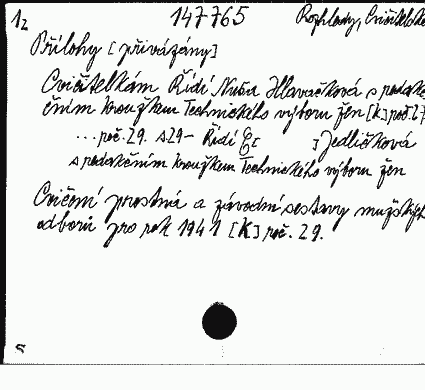 1z 147765 Rozhledy, Cvičitelské
Přílohy [přivázány]
Cvičitelkám Řídí Nuša Hlaváčková s redak
čním kroužkem Technického výboru žen [k] roč. 27
...roč. 29. s 29- Řídí E[ ] Jedličková
s redakčním kroužkem Technického výboru žen
Cvičení prostná a závodní sestavy mužských
odborů pro rok 1941 [K] roč. 29.
S